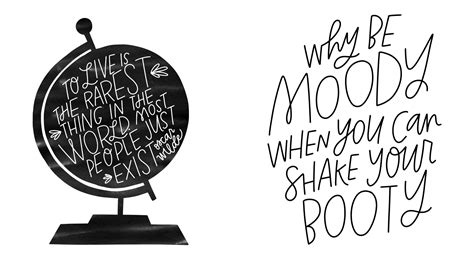 TO LIVE IS
THE RAREST
THING IN THE
WORLD. MOST
PEOPLE JUST
EXIST
oscar
wilde
why BE
MOODY
WHEN YOU Can
SHAKE YOUR
BOOTY